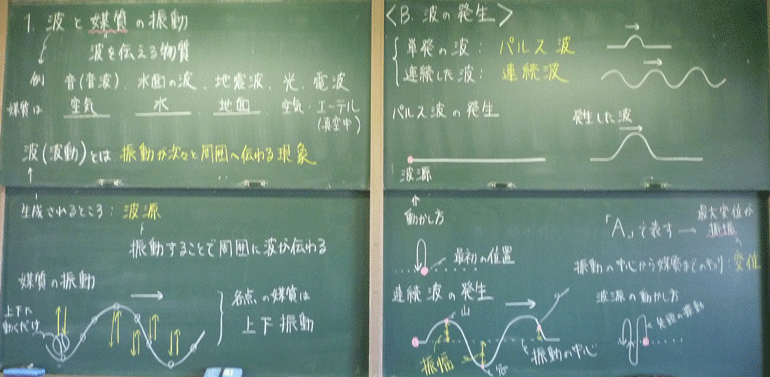 1. 波と媒質の振動
波を伝える物質
例 音(音波)、水面の波、地震波、光、電波
媒質は 空気 水 地面 空気・エーテル
(真空中)
波(波動)とは 振動が次々と周囲へ伝わる現象
生成されるところ:波源
振動することで周囲に波が伝わる
媒質の振動
上下に
動くだけ
各点の媒質は
上下振動
<B. 波の発生>
単発の波:パルス波
連続した波:連続波
パルス波の発生
発生した波
波源
動かし方
最初の位置
「A」で表す → 最大変位が
振幅
振動の中心から媒質までのキョリ:変位
連続波の発生
山
振幅
谷
振動の中心
波源の動かし方
先頭の振動